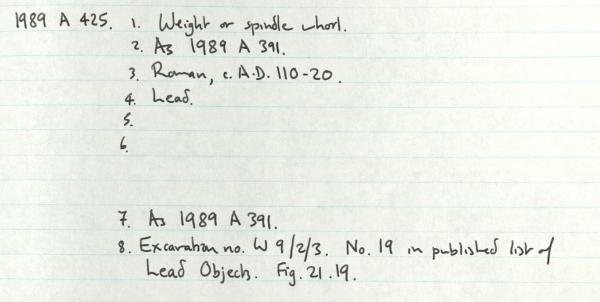 1989 A 425. 1. Weight or spindle whorl.
2. As 1989 A 391.
3. Roman, c. A.D. 110-20.
4. Lead.
5.
6.
7. As 1989 A 391.
8. Excavation no. W 9/2/3. No. 19 in published list of
Lead Objects. Fig. 21.19.